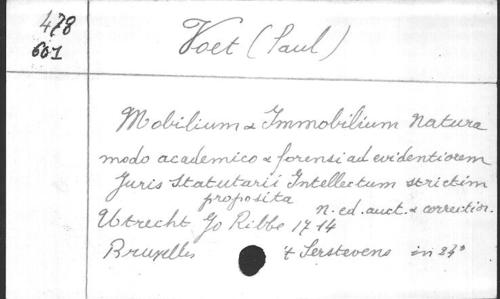 478
601
Voet (Paul)
Mobilium & Immobilium Natura
modo academico & forensi ad evidentiorem
Juris Statutarii Intellectum strictim
proposita
n. ed. auct. & correctior.
Utrecht Jo Ribbe 1714
Bruxelles t Serstevens in 24°